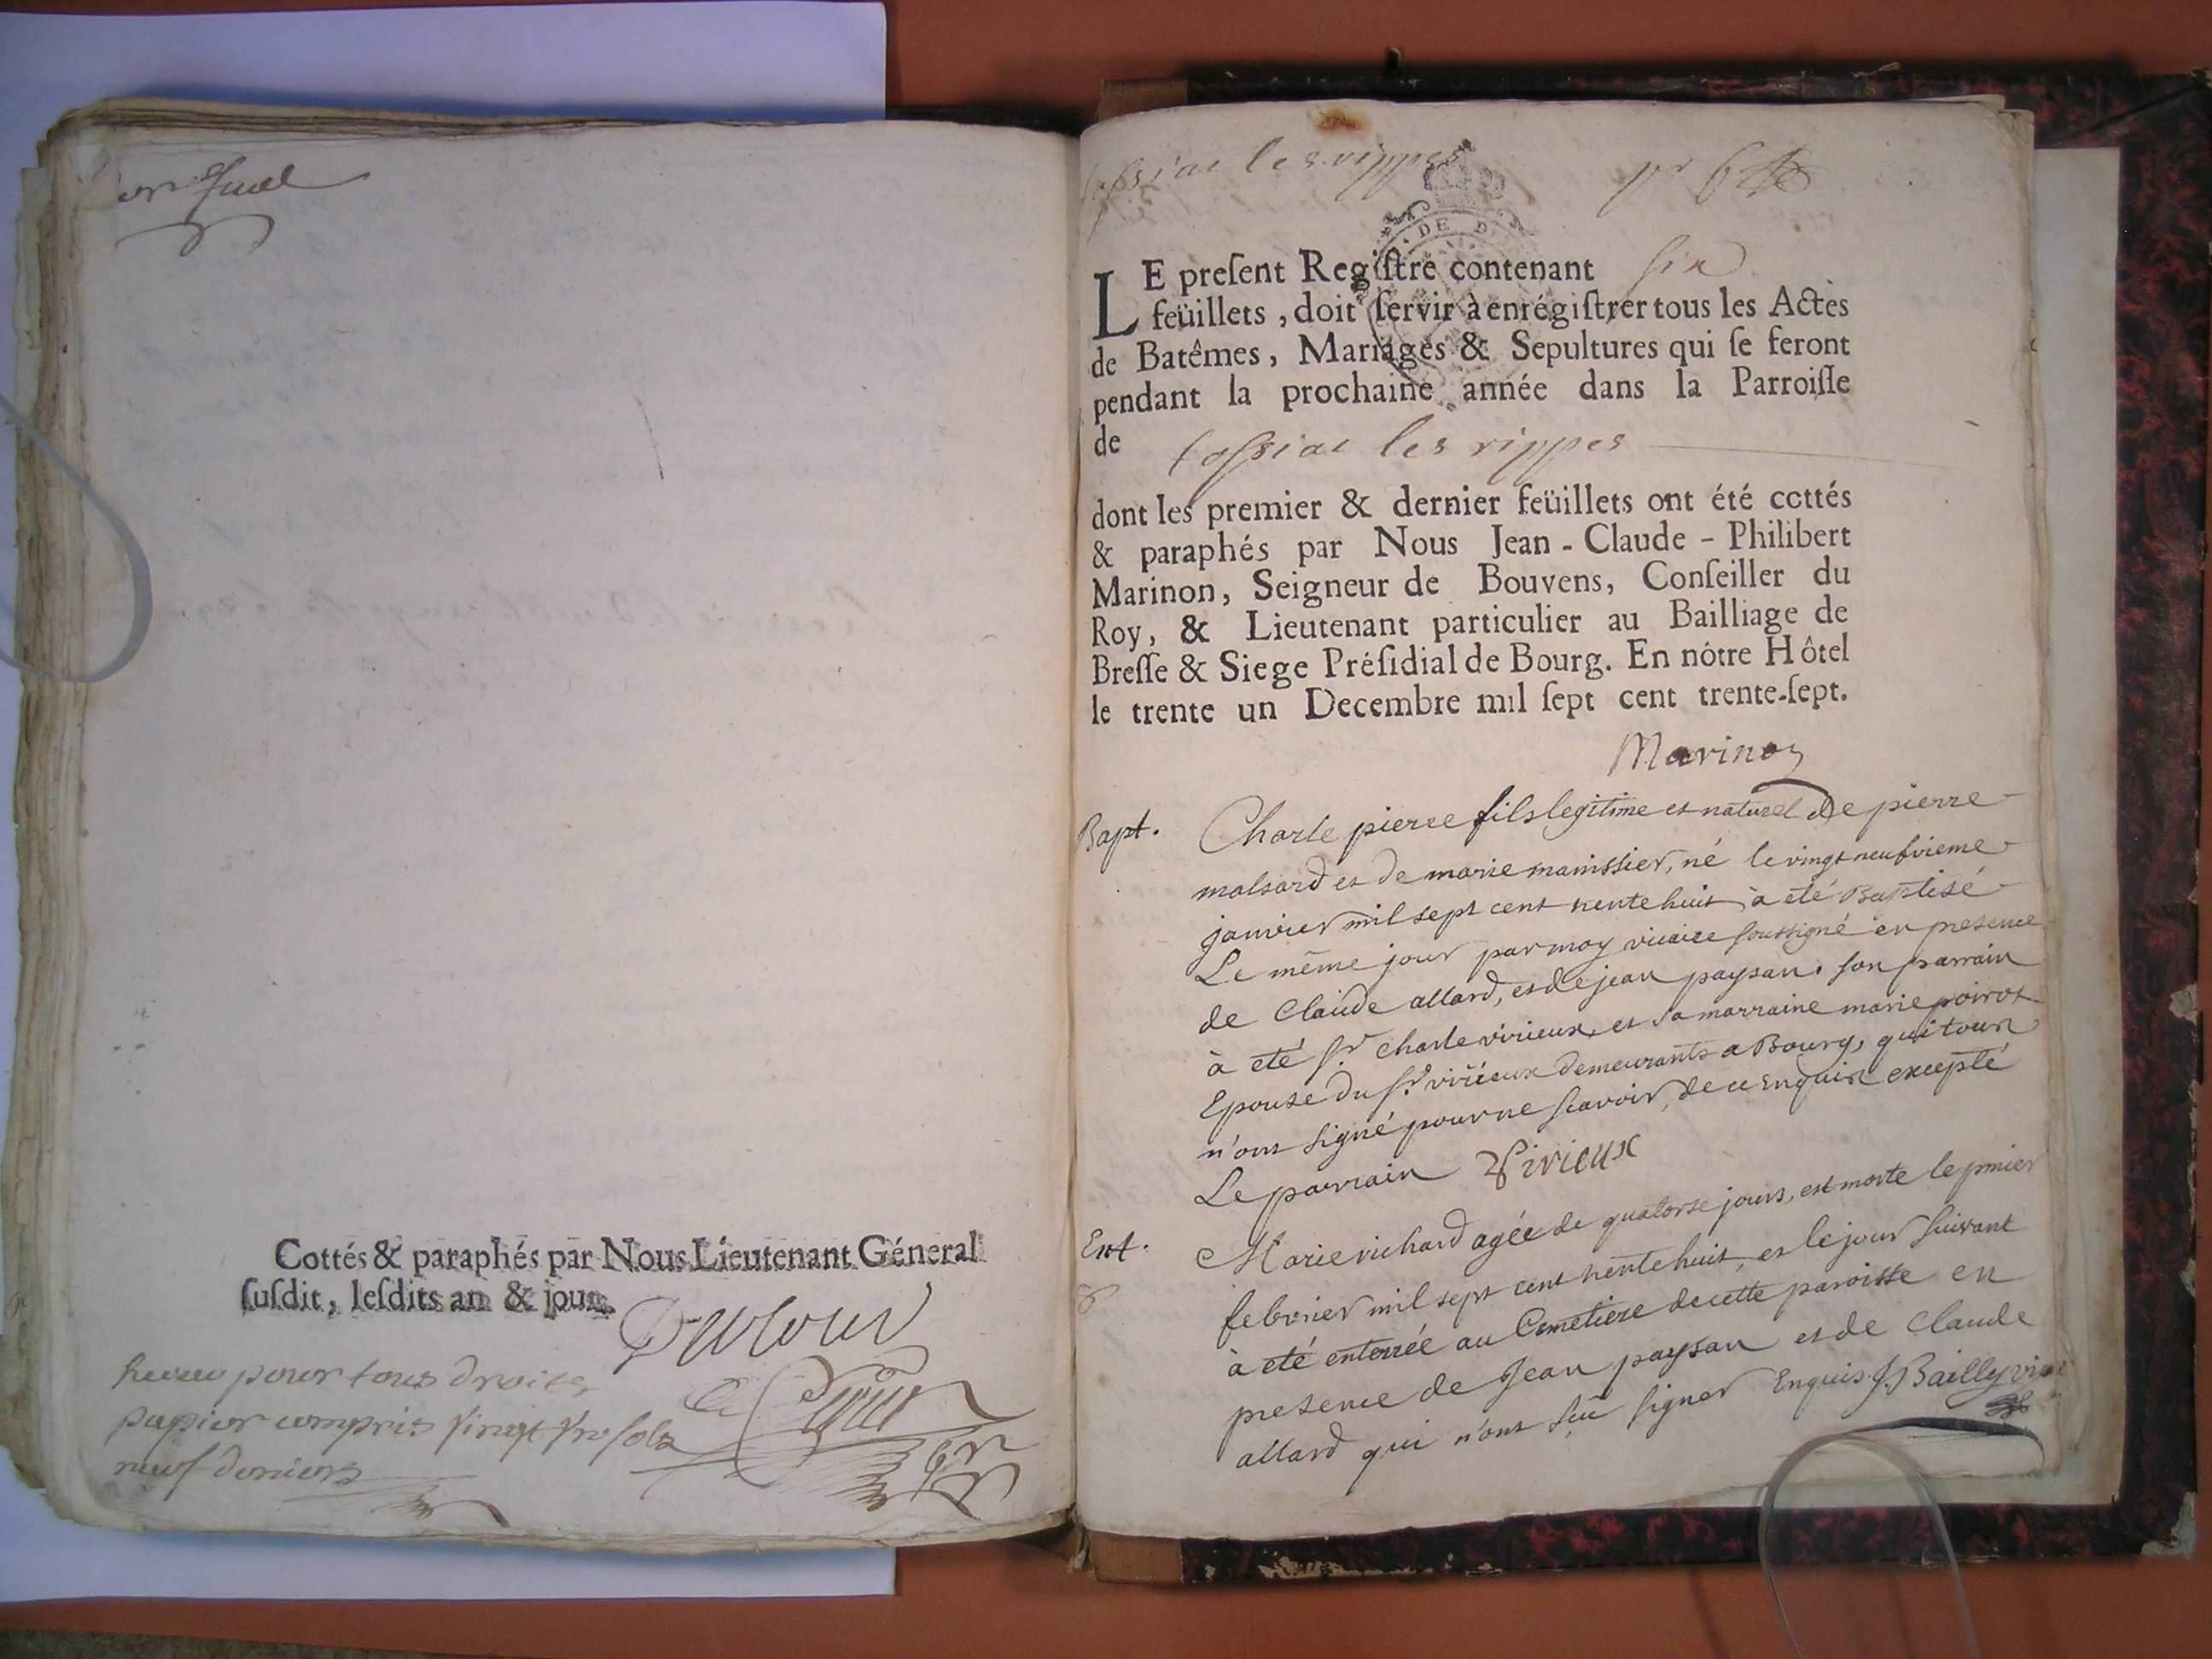 Cottés & paraphés par Nous Lieutenant Géneral
ſuſdit, leſdits an & jour.
pour tous droits
papier compris vingt sols
neuf deniers
Coſsiat les rippes
DE D
LE preſent Regiſtre contenant six
feüillets, doit ſervir à enrégiſtrer tous les Actes
de Batêmes, Mariages & Sepultures qui ſe feront
pendant la prochaine année dans la Parroiſſe
de Coſsiat les rippes
dont les premier & dernier feüillets ont été cottés
& paraphés par Nous Jean - Claude - Philibert
Marinon, Seigneur de Bouvens, Conſeiller du
Roy, & Lieutenant particulier au Bailliage de
Breſſe & Siege Préſidial de Bourg. En nôtre Hôtel
le trente un Decembre mil ſept cent trente-ſept.
Marinon
Bapt. Charle pierre fils legitime et naturel de pierre
malsard et de marie mainssier, né le vingt neufvieme
janvier mil sept cent trente huit à eté Baptisé
Le même jour par moy vicaire soussigné en presence
de Claude allard, et de jean paysan. son parrain
à eté sr charle virieux, et sa marraine marie poirot
Epouse du sr virieux demeurants a Bourg, qui tous
n'ont signé pour ne scavoir, de ce Enquis excepté
Le parrain Virieux
Ent. Marie richard agée de quatorse jours, est morte le pmier
febvrier mil sept cent trente huit, et le jour suivant
à eté enterrée au Cemetiere de cette paroisse en
presence de Jean paysan et de Claude
allard qui n'ont sçu signer Enquis J. Bailly vic